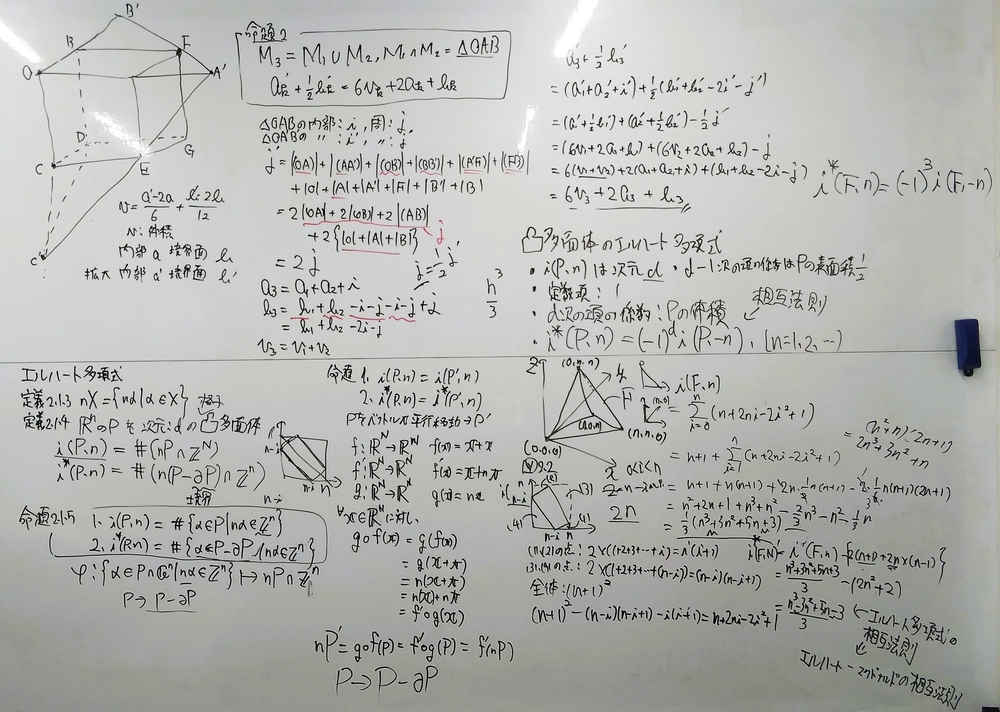 B'
B
F
O
A'
D
C
E
G
C'
v = (a'-2a)/6 + (b'-2b)/12
v: 体積
内部 a 境界面 b
拡大 内部 a' 境界面 b'
命題2
M₃ = M₁∪M₂, M₁∩M₂ = △OAB
△OABの内部: i, 周: j
△OABの 〃 i', 〃: j'
j' = |OA|+|AA'|+|OB|+|BB'|+|A'F|+|FB'|
+|O|+|A|+|A'|+|F|+|B'|+|B|
= 2|OA|+2|OB|+2|AB|
+2{|O|+|A|+|B|}
= 2j
j = ½j'
a₃ = a₁+a₂+i
b₃ = b₁+b₂-i-j-i-j+j
= b₁+b₂-2i-j
v₃ = v₁+v₂
n³/3
a₃' + ½b₃'
= (a₁'+a₂'+i')+½(b₁'+b₂'-2i'-j')
= (a₁'+½b₁')+(a₂'+½b₂')-½j'
= (6v₁+2a₁+b₁)+(6v₂+2a₂+b₂)-j
= 6(v₁+v₂)+2(a₁+a₂+i)+(b₁+b₂-2i-j)
= 6v₃+2a₃+b₃
i*(F,n)=(-1)³i(F,-n)
凸多面体のエルハート多項式
・i(P,n)は次元d ・d-1次の項の係数はPの表面積½
・定数項: 1
・d次の項の係数: Pの体積
相互法則
・i*(P,n)=(-1)ᵈi(P,-n), [n=1,2,…]
エルハート多項式
定義2.1.3 nX={nα|α∈X} 格子
定義2.1.4 ℝᴺのPを次元dの凸多面体
i(P,n)=#(nP∩ℤᴺ)
i*(P,n)=#(n(P-∂P)∩ℤᴺ)
境界
n-i
n-i n
命題2.1.5 1. i(P,n)=#{α∈P|nα∈ℤⁿ}
2. i*(P,n)=#{α∈P-∂P|nα∈ℤⁿ}
φ:{α∈P∩ℚⁿ|nα∈ℤⁿ}↦nP∩ℤⁿ
P→P-∂P
命題 1. i(P,n)=i(P',n)
2. i*(P,n)=i*(P',n)
f:ℝᴺ→ℝᴺ f(x)=x+π
f':ℝᴺ→ℝᴺ f'(x)=x+nπ
g:ℝᴺ→ℝᴺ g(x)=nx
∀x∈ℝᴺに対し、
g∘f(x)=g(f(x))
=g(x+π)
=n(x+π)
=n(x)+nπ
=f'∘g(x)
nP'=g∘f(P)=f'∘g(P)=f'(nP)
P→P-∂P
Z
(0,n,n)
y
F
(n,0,n)
(n,n,0)
(0,0,0)
x
i(F,n)
= Σ(n+2ni-2i²+1)
= n+1+Σ(n+2ni-2i²+1)
= n+1+n(n+1)+2n·½n(n+1)-2·⅙n(n+1)(2n+1)
= n²+2n+1+n³+n²-⅔n³-n²-⅓n
= ⅓(n³+3n²+5n+3)
(n²+n)(2n+1)
= 2n³+3n²+n
2n
(1)(2)の点: 2×(1+2+3+…+i)=i(i+1)
(3)(4)の点: 2×(1+2+3+…+(n-i))=(n-i)(n-i+1)
全体: (n+1)²
(n+1)²-(n-i)(n-i+1)-i(i+1)=n+2ni-2i²+1
i*(F,n)=i(F,n)-{2(n+1)+2n×(n-1)}
= (n³+3n²+5n+3)/3-(2n²+2)
= (n³-3n²+5n-3)/3
← エルハート多項式の
相互法則
エルハート-マクドナルドの相互法則